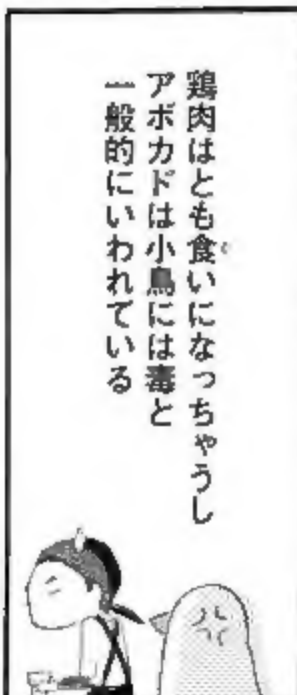 鶏肉はとも食いになっちゃうし
アボカドは小鳥には毒と
一般的にいわれている